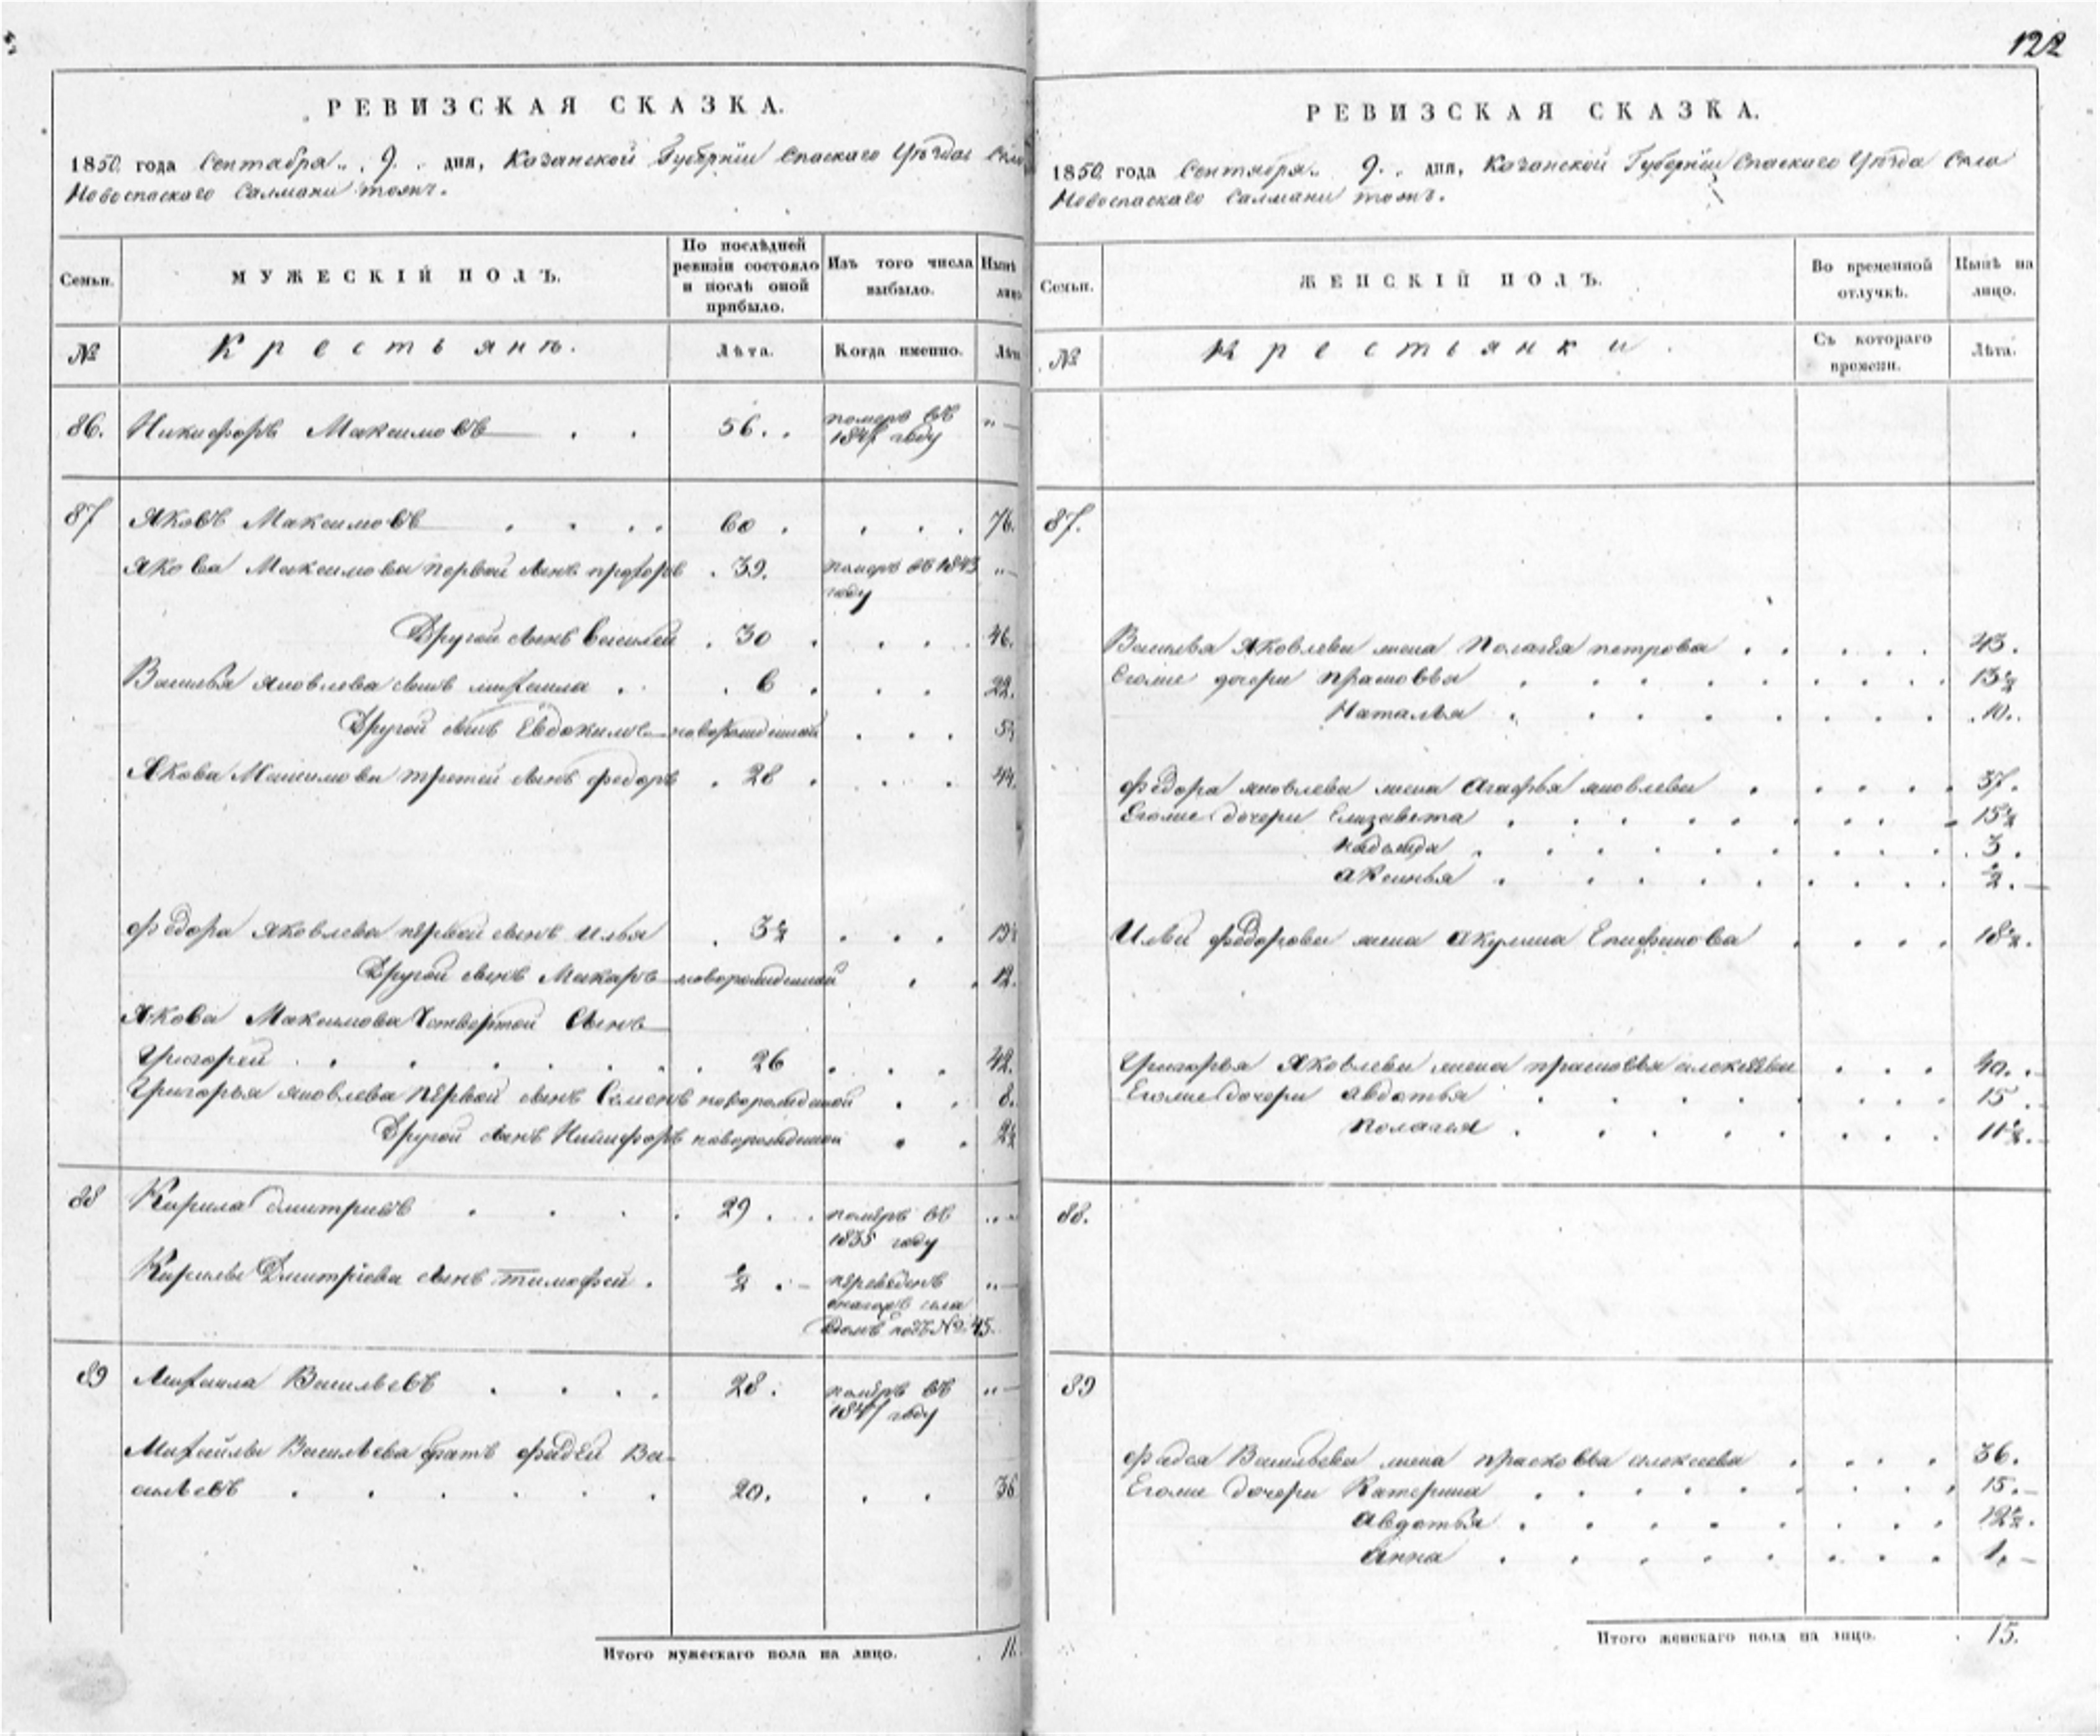 122
РЕВИЗСКАЯ СКАЗКА.
1850 года Сентября 9. дня, Казанской Губерніи Спаскаго Уѣзда Села
Новоспаскаго Салмани тожъ.
Семьи. МУЖЕСКІЙ ПОЛЪ. По послѣдней ревизіи состояло и послѣ оной прибыло. Изъ того числа выбыло. Нынѣ лицо
№ Крестьянъ. Лѣта. Когда именно. Лѣта
86. Никифоръ Максимовъ 56. померъ въ
году
87 Яковъ Максимовъ 60 76.
Якова Максимова первой сынъ 39. померъ въ 1843
году
Другой сынъ Василей 30 46.
Василья Яковлева сынъ Михаила 6 22.
Другой сынъ Евдокимъ новорожденной
Якова Максимова третей сынъ Федоръ 28 44.
Федора Яковлева первой сынъ Илья 3½
Другой сынъ Макаръ новорожденной 12.
Якова Максимова Четвертой Сынъ
Григорей 26 42.
Григорья Яковлева первой сынъ Семенъ новорожденной 8.
Другой сынъ Никифоръ новорожденной 2½
88 Кирила Дмитріевъ 29 померъ въ
1835 году
Кирилы Дмитріева сынъ Тимофей ½ переведенъ
села
подъ № 45.
89 Михаила Васильевъ 28. померъ въ
году
Михайлы Васильева братъ Фадей Ва-
сильевъ 20. 36
Итого мужескаго пола на лицо. 11.
РЕВИЗСКАЯ СКАЗКА.
1850 года Сентября 9. дня, Казанской Губерніи Спаскаго Уѣзда Села
Новоспаскаго Салмани тожъ.
Семьи. ЖЕНСКІЙ ПОЛЪ. Во временной отлучкѣ. Нынѣ на лицо.
№ Крестьянки. Съ котораго времени. Лѣта.
87.
Василья Яковлева жена Полагея Петрова 43.
Егоже дочери Прасковья 13½
Наталья 10.
Федора Яковлева жена Агафья Яковлева 37.
Егоже дочери Елизавета 15½
Надежда 3.
Аксинья ½.
Ильи Федорова жена Акулина Епифанова 18½.
Григорья Яковлева жена Прасковья Алексѣева 40.
Егоже дочери Авдотья 15
Полагея 11½.
88.
89
Фадея Васильева жена Прасковья Алексеева 36.
Егоже дочери Катерина 15.
Авдотья 12½.
Анна 1.
Итого женскаго пола на лицо. 15.